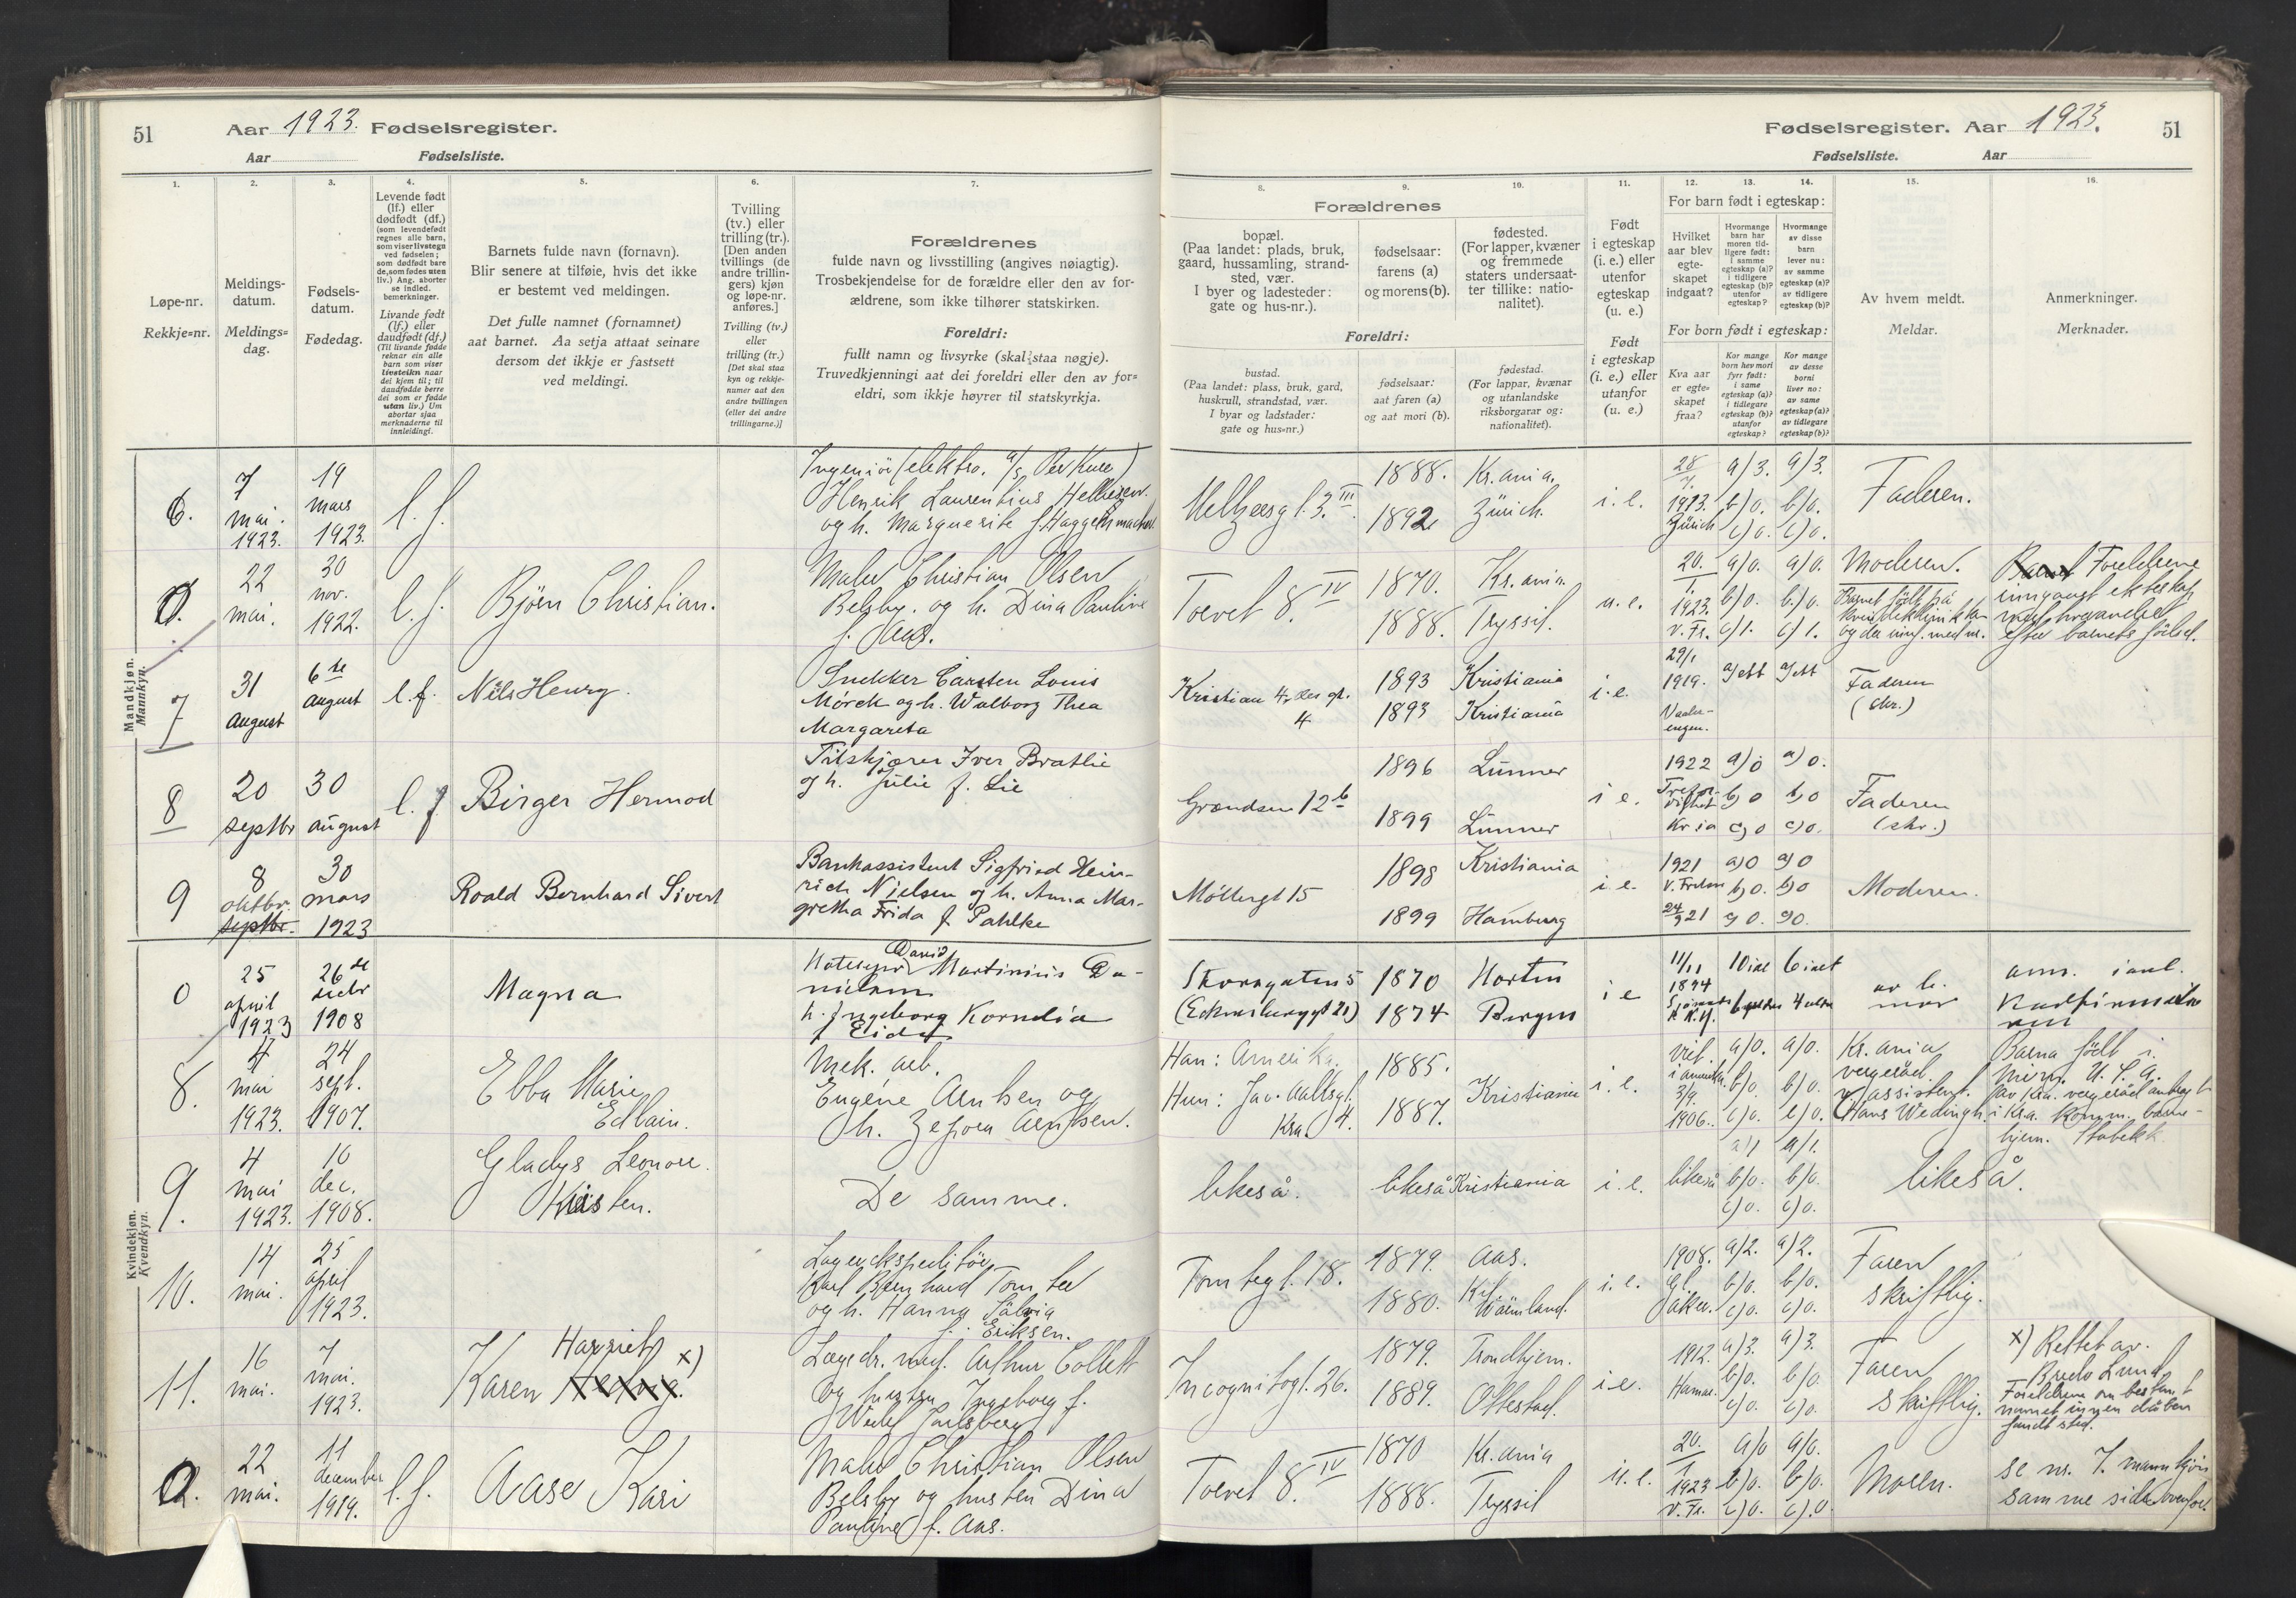 51 Aar 1923. Fødselsregister.
Aar Fødselsliste.
Fødselsregister. Aar 1923. 51
Fødselsliste. Aar
1.
Løpe-nr.
Rekkje=nr.
2.
Meldings-
datum.
Meldings=
dag.
3.
Fødsels-
datum.
Fødedag.
4.
Levende født
(lf.) eller
dødfødt (df.)
(som levendefødt
regnes alle barn,
som viser livstegn
ved fødselen;
som dødfødt bare
de, som fødes uten
liv.) Ang. aborter
se indled.
bemerkninger.
Livande født
(lf.) eller
daudfødt (df.)
(Til livande fødde
reknar ein alle
barn som viser
livsteikn naar
dei kjem til; til
daudfødde berre
dei som er fødde
utan liv.) Um
abortar sjaa
merknaderne til
innleidingi.
5.
Barnets fulde navn (fornavn).
Blir senere at tilføie, hvis det ikke
er bestemt ved meldingen.
Det fulle namnet (fornamnet)
aat barnet. Aa setja attaat seinare
dersom det ikkje er fastsett
ved meldingi.
6.
Tvilling
(tv.) eller
trilling (tr.).
[Den anden
tvillings (de
andre trillin-
gers) kjøn
og løpe-nr.
anføres.]
Tvilling (tv.)
eller
trilling (tr.)
[Det skal staa
kyn og rekkje-
numer aat den
andre tvillingen
(eller dei andre
trillingarne.)]
7.
Forældrenes
fulde navn og livsstilling (angives nøiagtig).
Trosbekjendelse for de forældre eller den av for-
ældrene, som ikke tilhører statskirken.
Foreldri:
fullt namn og livsyrke (skal staa nøgje).
Truvedkjenningi aat dei foreldri eller den av for=
eldri, som ikkje høyrer til statskyrkja.
Forældrenes
8.
bopæl.
(Paa landet: plads, bruk,
gaard, hussamling, strand-
sted, vær.
I byer og ladesteder:
gate og hus-nr.).
9.
fødselsaar:
farens (a)
og morens (b).
10.
fødested.
(For lapper, kvæner
og fremmede
staters undersaat-
ter tillike: natio-
nalitet).
Foreldri:
bustad.
(Paa landet: plass, bruk, gard,
huskrull, strandstad, vær.
I byar og ladstader:
gate og hus=nr.)
fødselsaar:
aat faren (a)
og aat mori (b).
fødestad.
(For lappar, kvænar
og utanlandske
riksborgarar og:
nationalitet).
11.
Født
i egteskap
(i. e.) eller
utenfor
egteskap
(u. e.)
Født
i egteskap
(i. e.) eller
utanfor
egteskap
(u. e.)
For barn født i egteskap:
12.
Hvilket
aar blev
egte-
skapet
indgaat?
13.
Hvormange
barn har
moren tid-
ligere født:
i samme
egteskap (a)?
i tidligere
egteskap (b)?
utenfor
egteskap?
14.
Hvormange
av disse
barn
lever nu:
av samme
egteskap (a)?
av tidligere
egteskap (b)?
For born født i egteskap:
Kva aar
er egte=
skapet
fraa?
Kor mange
born hev mori
fyrr født:
i same
egteskap (a)?
i tidlegare
egteskap (b)?
utanfor
egteskap?
Kor mange
av desse
borni
liver no:
av same
egteskap (a)?
av tidlegare
egteskap (b)?
15.
Av hvem meldt.
Meldar.
16.
Anmerkninger.
Merknader.
Mandkjøn.
Mannkyn.
6.
7
mai.
1923.
19
mars
1923.
l. f.
Ingeniör (elektro. a/s Per Kure)
Henrik Laurentius Helliesen
og h. Marguerite f. Haggenmacher
Meltzersgt. 3. III
1888.
1892
Kr.ania.
Zürich.
i. e.
28/7.
1913.
Zürich
a) 3.
b) 0.
c) 0.
a) 3.
b) 0.
c) 0.
Faderen.
22
mai.
30
nov.
1922.
l. f.
Björn Christian.
Maler Christian Olsen
Belsby. og h. Dina Pauline
f. Aas.
Torvet 8. IV
1870.
1888.
Kr.ania.
Trysil.
u. e.
20./1.
1923.
v. Fr.
a) 0.
b) 0.
c) 1.
a) 0.
b) 0.
c) 1.
Moderen.
Barnet født på
kvindeklinikken
Foreldrene
inngaaet ekteskap
med hverandre
efter barnets födsel.
7
31
August
6te
August
l. f.
Nils Henry.
Snekker Carsten Louis
Mörck og h. Walborg Thea
Margareta
Kristian 4des gt.
4
1893
1893
Kristiania
Kristiania
i. e.
29/1
1919.
Vaaler-
engen.
a) ett
a) ett
Faderen
(skr.)
8
20
septbr
30
august
l. f.
Birger Hermod
Iver Bratlie
og h. Julie f. Lie
Grændsen 12b
1896
1899
Lunner
Lunner
i e.
1922
Kr ia
a) 0
b) 0
c) 0
a) 0.
b) 0
c) 0.
Faderen
(skr.)
9
8
oktbr.
septbr.
30
mars
1923
Roald Bernhard Sivert
Bankassistent Sigfried Hein-
rich Nielsen og h. Anna Mar-
gretha Frida f. Pahlke
Möllergt 15
1898
1899
Kristiania
Hamburg
i e.
1921
V. Frelsen
24/9 21
a) 0
b) 0.
c) 0.
a) 0
b) 0
c) 0.
Moderen.
Kvindekjøn.
Kvendkyn.
0
25
april
1923
26de
1908
Magna
David
Martinius Da-
nielsen
h. Ingeborg Kornelia
f Eide
Storgaten 5
(Eckersbergsgt 21)
1870
1874
Horten
Bergen
i e
11/11
1894
mor
8.
4
mai
1923.
24
sept.
1907.
Ebba Marie
Edbain.
Mek. arb.
Eugéne Arntsen og
h. Zefora Arntsen.
Han: Amerika.
Hun: Jac. Aallsgt.
Kra. 4.
1885.
1887.
Kristiania
i. e.
viet.
i Amerika.
3/9.
1906.
a) 0.
b) 0.
c) 0.
a) 0.
b) 0.
c) 0.
Kr.ania
vergeråd.
v/ assistent.
Hans Wedingh.
Barna födt i
Minn. U. S. A.
Av Kra. vergeråd anbragt
i Kra. komm. barne-
hjem. Stabekk
9.
4
mai
1923.
10
dec.
1908.
Gladys Leonore.
Kirsten.
De samme.
likeså.
likeså
Kristiania
i. e.
likeså
a) 1
b) 0.
c) 0.
a) 1.
b) 0.
c) 0.
likeså.
10.
14
mai.
25
april
1923.
Lagerekspeditör
Karl Bernhard Tomter
og h. Hanna Sålvia
f. Eriksen.
Tomtegt. 18.
1879.
1880.
Aas.
Wärmland.
i. e.
1908.
Gl.
Aker.
a) 2.
b) 0.
c) 0.
a) 2.
b) 0.
c) 0.
Faren
skriftlig.
11.
16
mai.
7
mai.
1923.
Harriet x)
Karen
Læge dr. med. Arthur Collett
og hustru Ingeborg f.
Wedel Jarlsberg
Incognitogt. 26.
1879.
1889.
Trondhjem.
Ottestad.
i. e.
1912.
Hamar.
a) 3.
b) 0.
c) 0.
a) 3.
b) 0.
c) 0.
Faren
skriftlig.
x) Rettet av.
Foreldrene om bestemt
navnet ingen dåben
fandt sted.
22
mai.
11
december
1919.
l. f.
Aase Kari
Maler Christian Olsen
Belsby og hustru Dina
Pauline f. Aas.
Torvet 8. IV
1870
1888.
Kr.ania
Trysil
u. e.
20./1
1923
v. Fr.
a) 0
b) 0.
c) 0.
a) 0.
b) 0.
c). 0
Moren.
se nr. 7. mannkjön
samme side ovenfor.